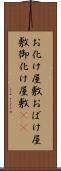 お化け屋敷おばけ屋
敷御化け屋敷××